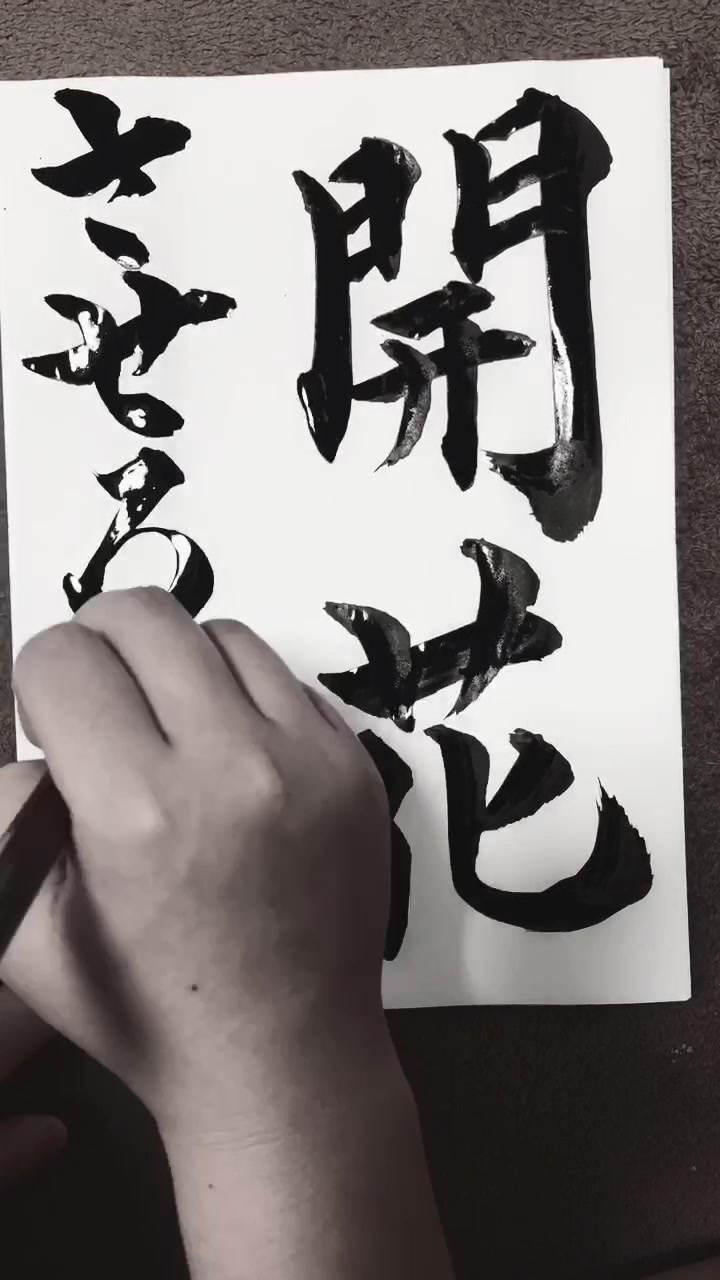 開花
させる